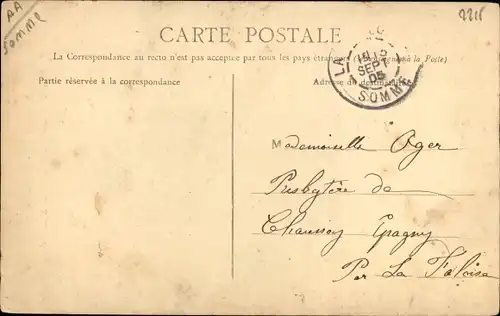 AA
SOMME
2215
CARTE POSTALE
La Correspondance au recto n'est pas acceptée par tous les pays étrangers (se renseigner à la Poste)
Partie réservée à la correspondance
Adresse du destinataire
LA
15
SEPT
05
SOMME
Mademoiselle Oger
Presbytère de
Chaussoy Epagny
Par La Faloise